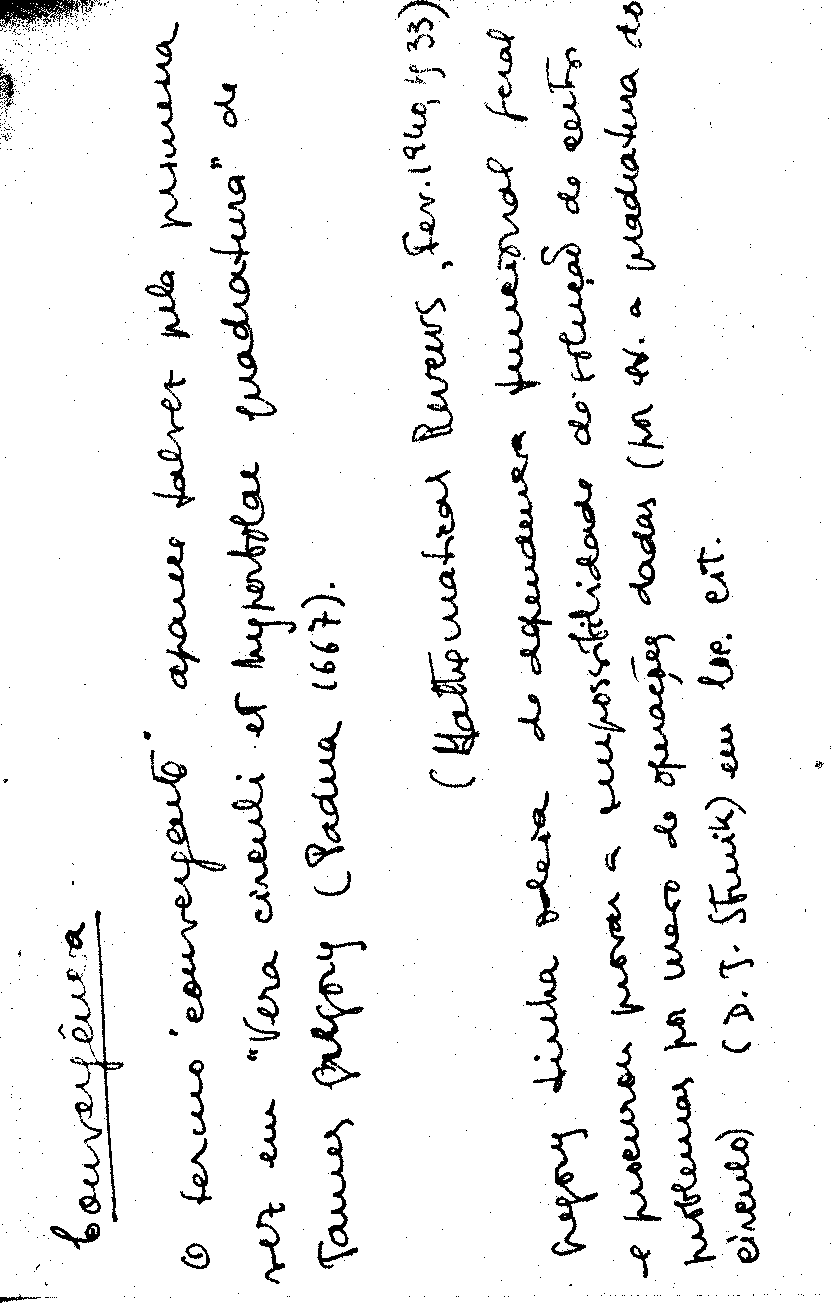 Convergência
O termo "convergente" aparece talvez pela primeira
vez em "Vera circuli et hyperbolae quadratura" de
James Gregory (Padua 1667).
(Mathematical Reviews, Fev. 1940, p 33)
Gregory tinha ideia de dependencia funcional geral
e procurou provar a impossibilidade de solução de certos
problemas por meio de operações dadas (por ex. a quadratura do
circulo) (D. J. Struik) em loc. cit.